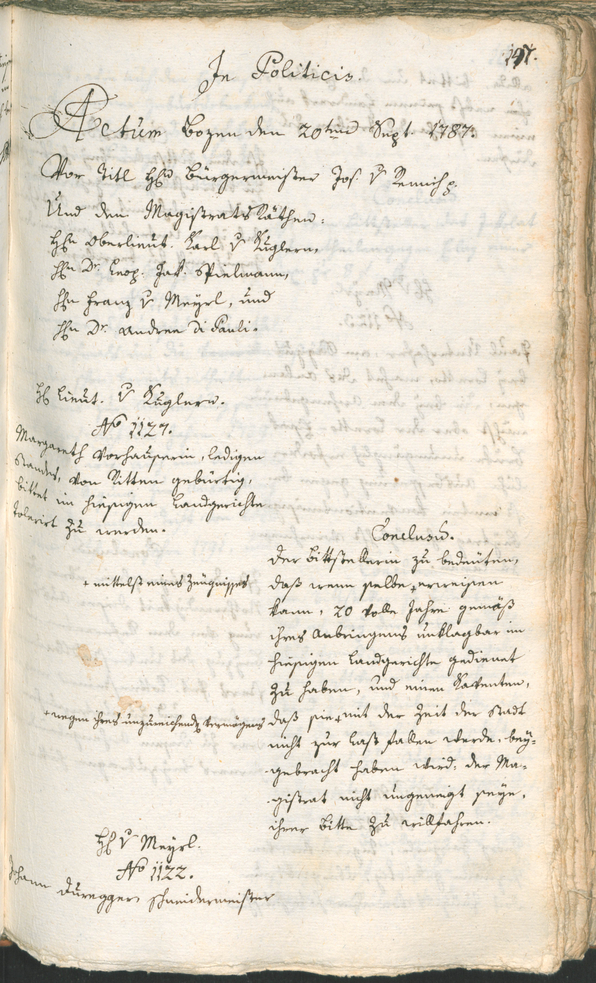 197.
In Politicis.
Actum Bozen den 20ten Sept. 1787.
Vor Titl Hhn Bürgermeister Jos. v Remich p.
Und den Magistrats Räthen:
Hhn Oberlieut. Karl v Kuglern,
Hhn Dr. Leop. Jak. Spielmann,
Hhn Franz v Meyrl, und
Hhn Dr. Andree di Pauli.
Hh Lieut. v Kuglern.
No 1127.
Margareth Vorhauserin, ledigen
Standes, von Ritten gebürtig,
bittet im hiesigen Landgerichte
tolerirt zu werden.
Conclusū.
Der Bittstellerin zu bedeuten,
+ mittelst eines Zeugnisses
daß wenn selbe + erweisen
kann, 20 volle Jahre gemäß
ihres Anbringens unklagbar im
hiesigen Landgerichte gedienet
zu haben, und einen Kaventen,
+ wegen ihres unzureichend Vermögens
daß sie + mit der Zeit der Stadt
nicht zur Last fallen werde, bey-
gebracht haben wird, der Ma-
gistrat nicht ungeneigt seye,
ihrer Bitte zu willfahren.
Hh v Meyrl.
No 1122.
Johann Düregger Schneidermeister